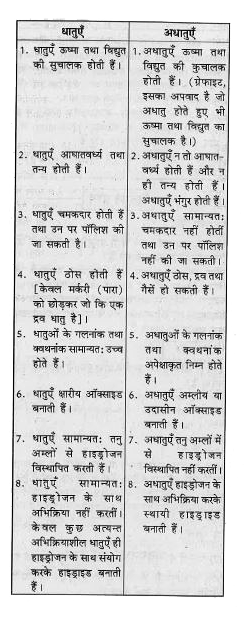 धातुएँ
1. धातुएँ ऊष्मा तथा विद्युत
की सुचालक होती हैं।
2. धातुएँ आघातवर्ध्य तथा
तन्य होती हैं।
3. धातुएँ चमकदार होती हैं
तथा उन पर पॉलिश की
जा सकती है।
4. धातुएँ ठोस होती हैं
[केवल मर्करी (पारा)
को छोड़कर जो कि एक
द्रव धातु है]।
5. धातुओं के गलनांक तथा
क्वथनांक सामान्यतः उच्च
होते हैं।
6. धातुएँ क्षारीय ऑक्साइड
बनाती हैं।
7. धातुएँ सामान्यतः तनु
अम्लों से हाइड्रोजन
विस्थापित करती हैं।
8. धातुएँ सामान्यतः
हाइड्रोजन के साथ
अभिक्रिया नहीं करतीं।
केवल कुछ अत्यन्त
अभिक्रियाशील धातुएँ ही
हाइड्रोजन के साथ संयोग
करके हाइड्राइड बनाती
हैं।
अधातुएँ
1. अधातुएँ ऊष्मा तथा
विद्युत की कुचालक
होती हैं। (ग्रेफाइट,
इसका अपवाद है जो
अधातु होते हुए भी
ऊष्मा तथा विद्युत का
सुचालक है।)
2. अधातुएँ न तो आघात-
वर्ध्य होती हैं और न
ही तन्य होती हैं।
अधातुएँ भंगुर होती हैं।
3. अधातुएँ सामान्यतः
चमकदार नहीं होतीं
तथा उन पर पॉलिश
नहीं की जा सकती।
4. अधातुएँ ठोस, द्रव तथा
गैसें हो सकती हैं।
5. अधातुओं के गलनांक
तथा क्वथनांक
अपेक्षाकृत निम्न होते
हैं।
6. अधातुएँ अम्लीय या
उदासीन ऑक्साइड
बनाती हैं।
7. अधातुएँ तनु अम्लों में
से हाइड्रोजन
विस्थापित नहीं करतीं।
8. अधातुएँ हाइड्रोजन के
साथ अभिक्रिया करके
स्थायी हाइड्राइड
बनाती हैं।